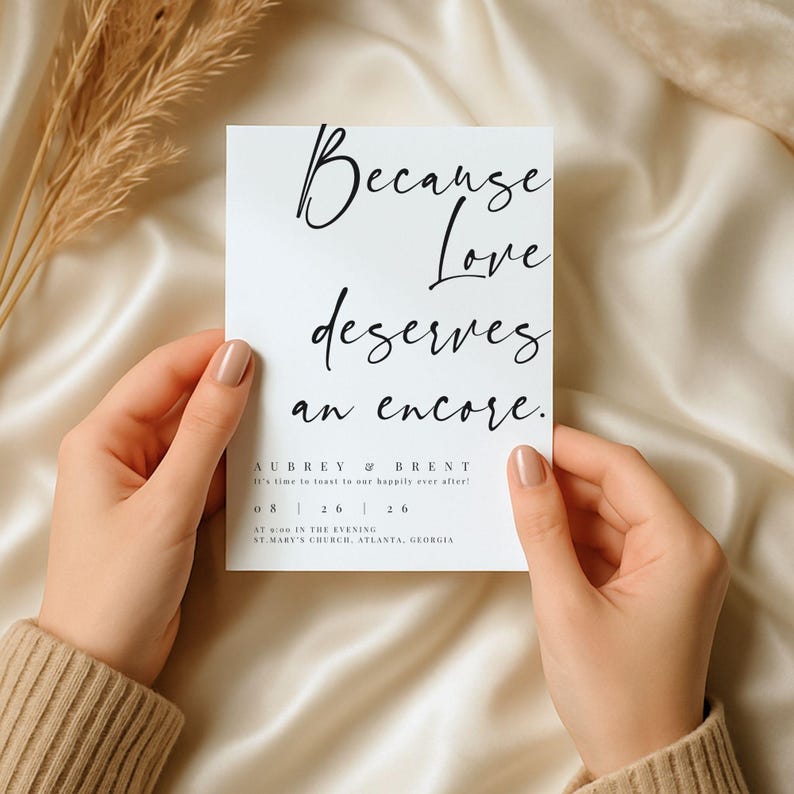 Because
Love
deserves
an encore.
AUBREY & BRENT
It's time to toast to our happily ever after!
08 | 26 | 26
AT 9:00 IN THE EVENING
ST.MARY'S CHURCH, ATLANTA, GEORGIA